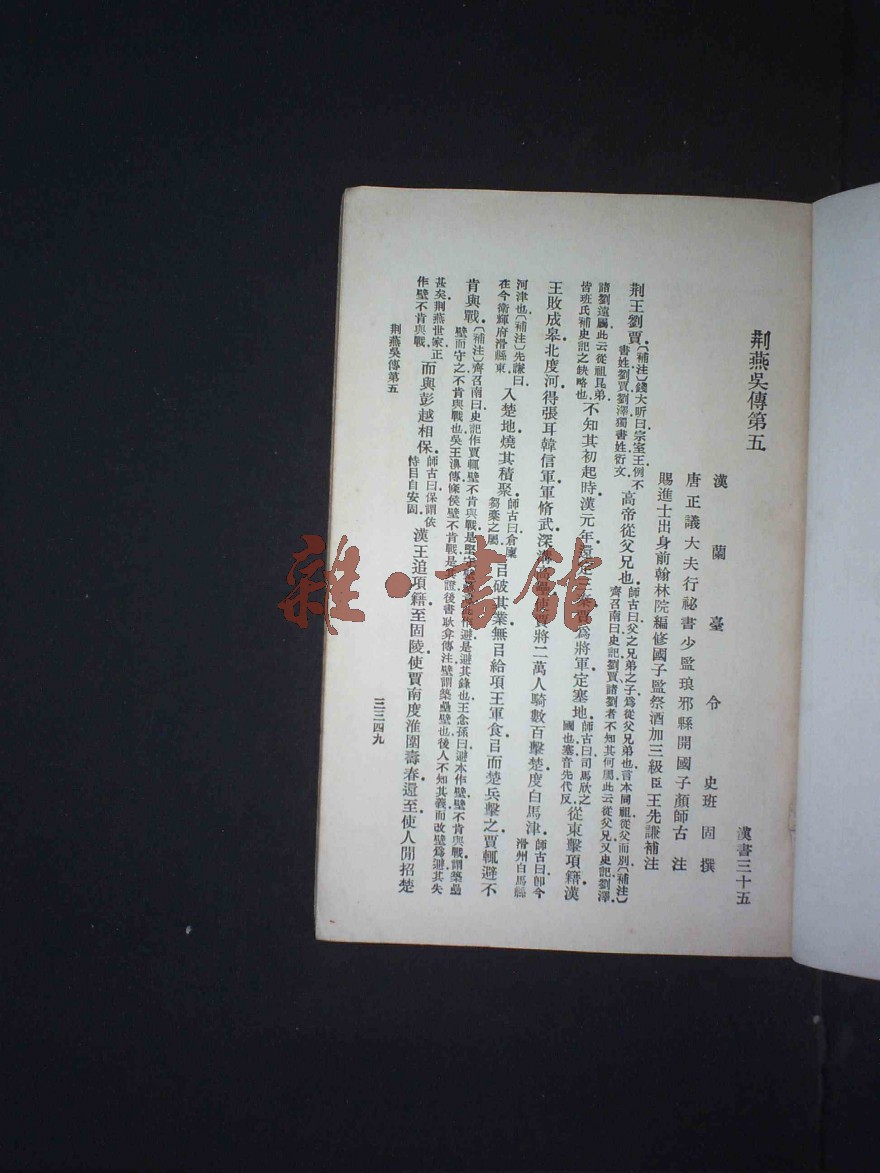 荆燕吳傳第五
漢書三十五
漢蘭臺令史班固撰
唐正議大夫行祕書少監琅邪縣開國子顏師古注
賜進士出身前翰林院編修國子監祭酒加三級臣王先謙補注
荆王劉賈。〔補注〕錢大昕曰宗室王例不書姓劉賈劉澤獨書姓衍文。高帝從父兄也。師古曰父之兄弟之子爲從父兄弟也言本同祖從父而別〔補注〕齊召南曰史記劉賈諸劉者不知其何屬此云從父兄又史記劉澤
諸劉遠屬此云從祖昆弟皆班氏補史記之缺略也。不知其初起時漢元年還定三秦賈爲將軍定塞地。師古曰司馬欣之國也塞音先代反。從東擊項籍漢
王敗成皋北度河。得張耳韓信軍軍脩武深溝高壘使賈將二萬人騎數百擊楚度白馬津。師古曰卽今滑州白馬縣
河津也〔補注〕先謙曰在今衛輝府滑縣東。入楚地燒其積聚。師古曰倉廩芻藁之屬。㠯破其業無㠯給項王軍食㠯而楚兵擊之賈輒避不
肯與戰。〔補注〕齊召南曰史記作賈輒壁不肯與戰是堅守壁壘也此作避是避其鋒也王念孫曰避本作壁壁不肯與戰謂築壘壁而守之不肯與戰也吳王濞傳條侯壁不肯戰是其證後書耿弇傳注壁謂築壘壁也後人不知其義而改壁爲避其失
甚矣荆燕世家正作壁不肯與戰。而與彭越相保。師古曰保謂依恃目自安固。漢王追項籍至固陵使賈南度淮圍壽春還至使人閒招楚
荆燕吳傳第五
三三四九
雜·書館